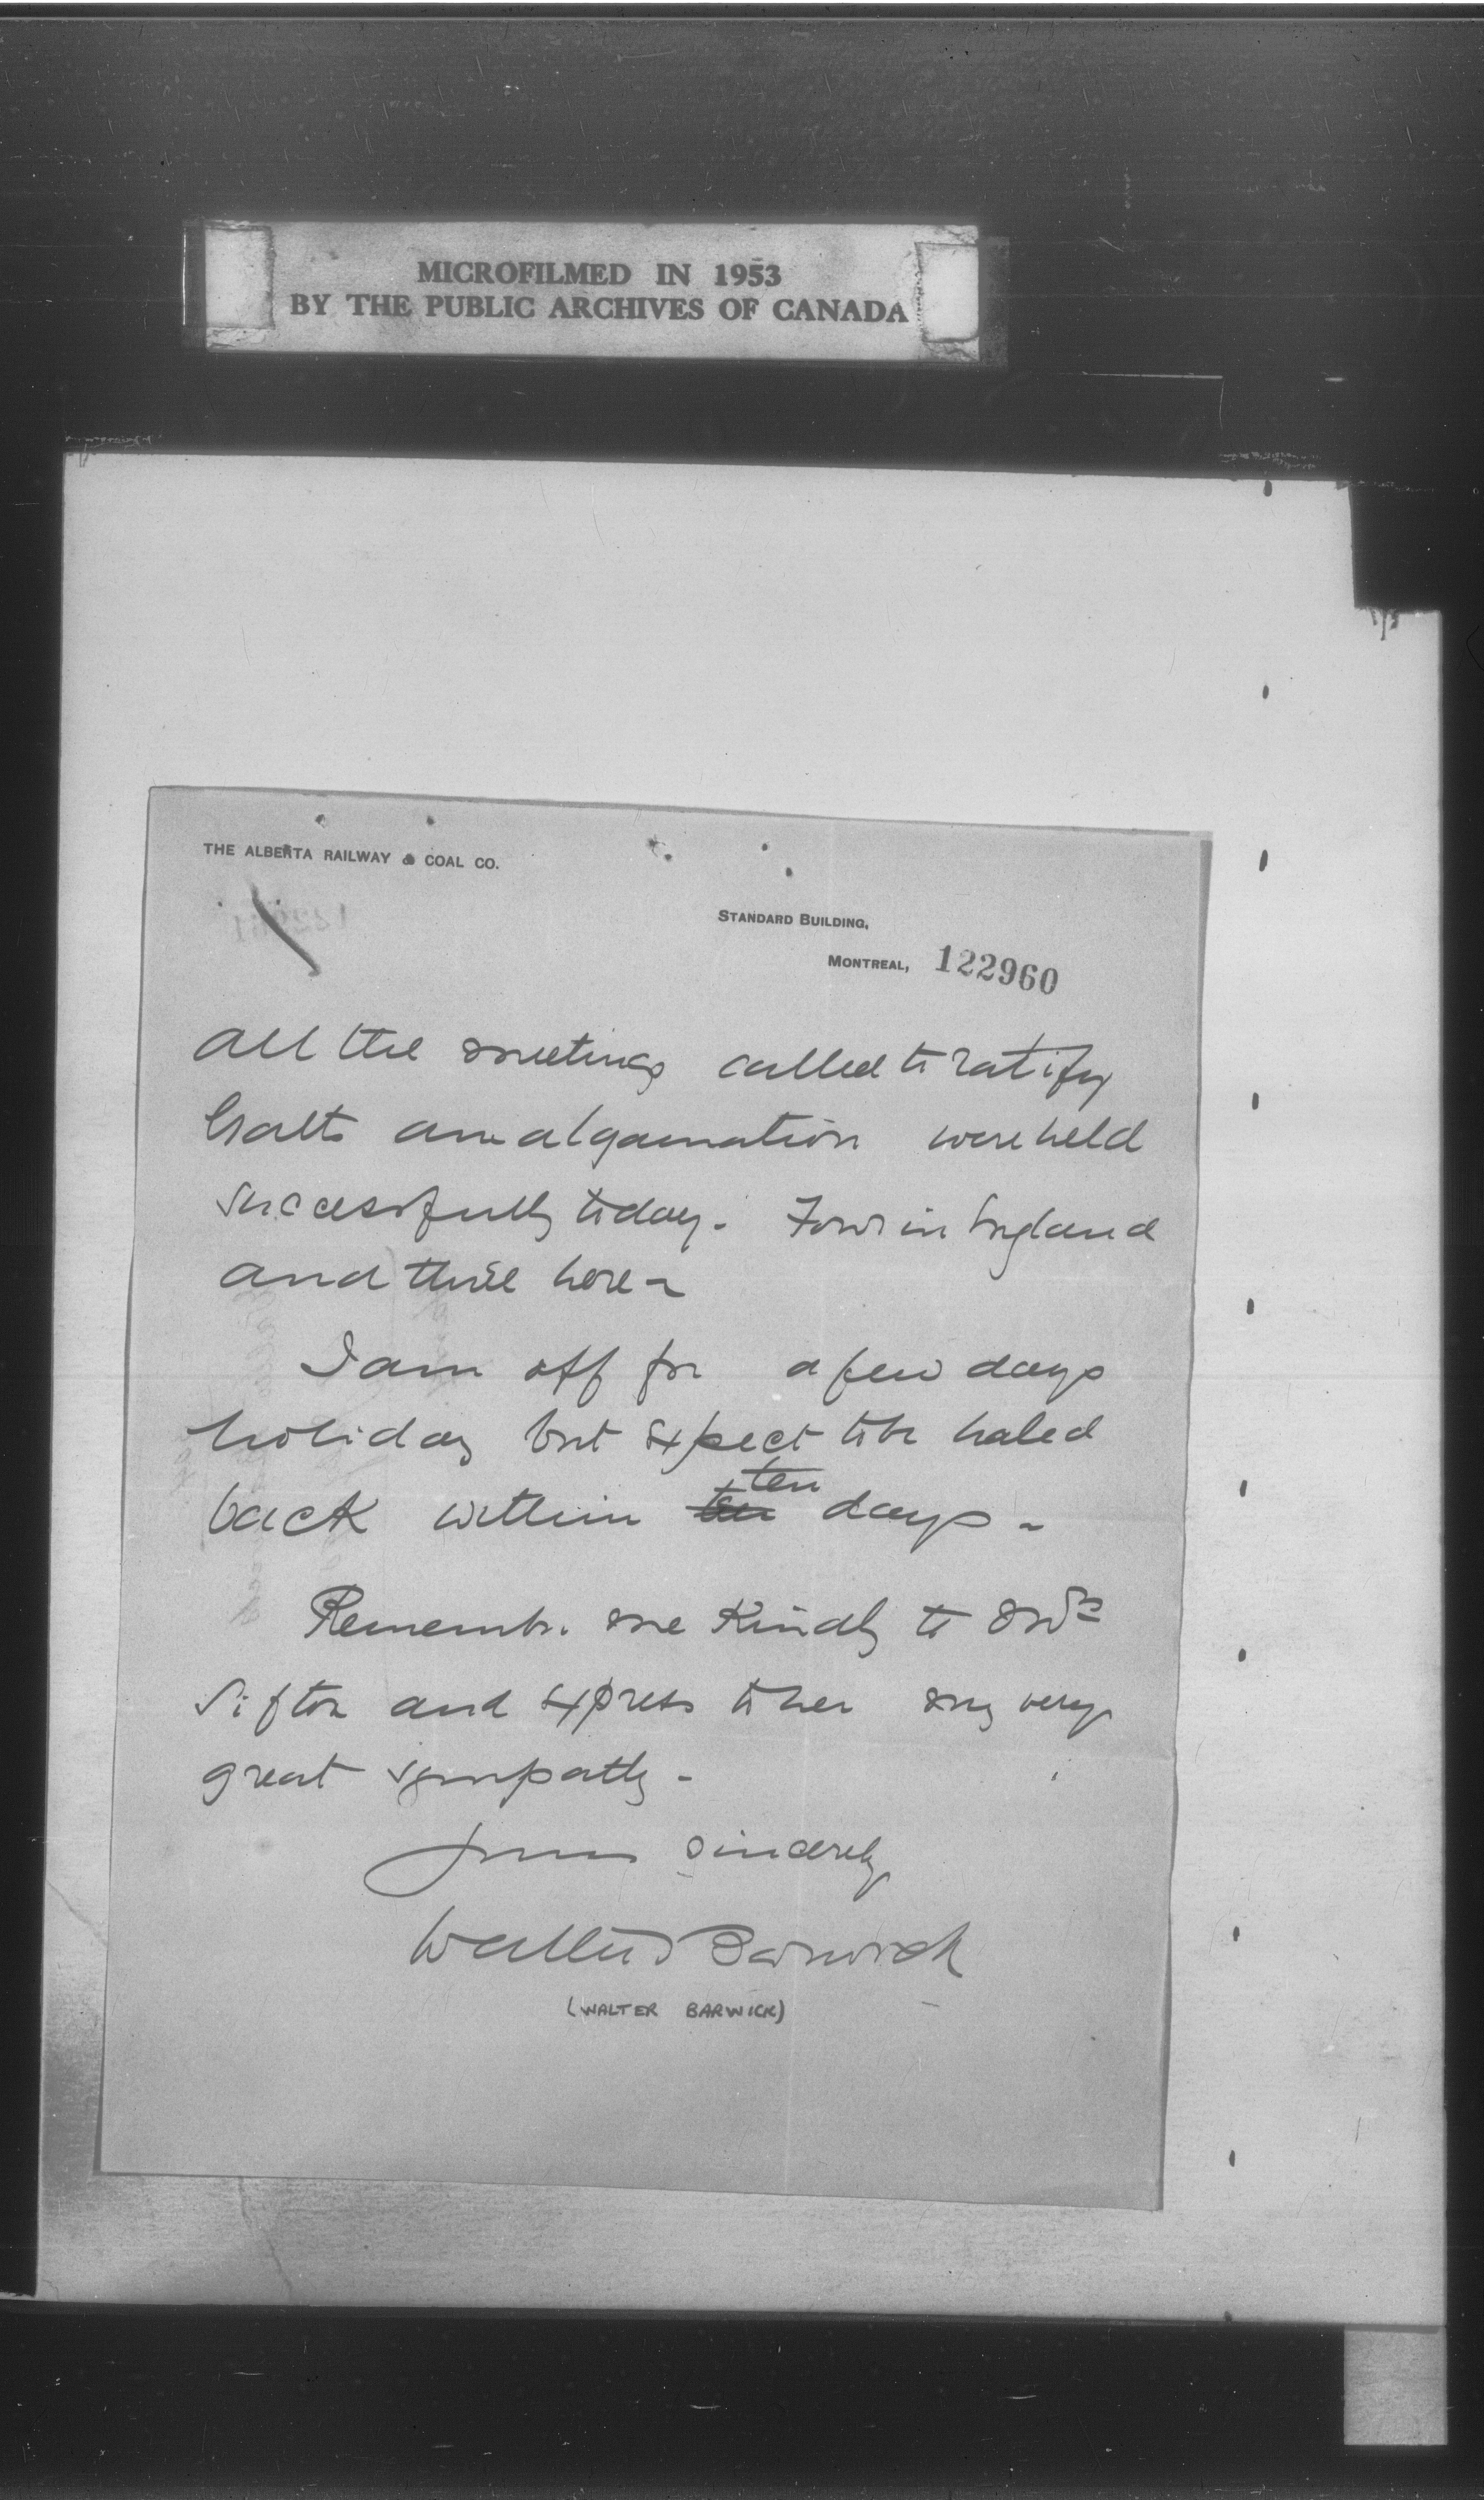 MICROFILMED IN 1953
BY THE PUBLIC ARCHIVES OF CANADA
THE ALBERTA RAILWAY & COAL CO.
STANDARD BUILDING,
MONTREAL, 122960
All the meetings called to ratify
Galts amalgamation were held
successfully today. Four in England
and three here -
I am off for a few days
holiday but expect to be haled
back within ten ten days -
Remember me Kindly to Mrs
Sifton and express to her my very
great sympathy -
Yours sincerely
Walter Barwick
(WALTER BARWICK)